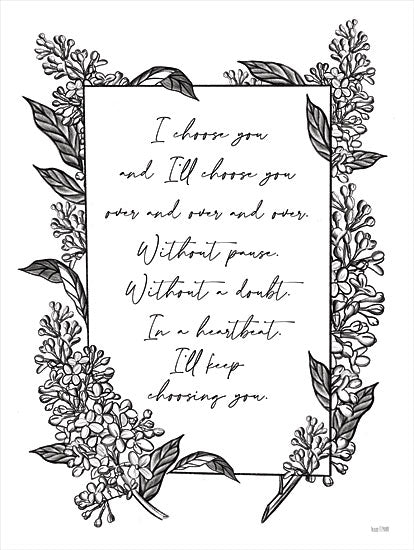 I choose you
and I'll choose you
over and over and over.
Without pause.
Without a doubt.
In a heartbeat.
I'll keep
choosing you.